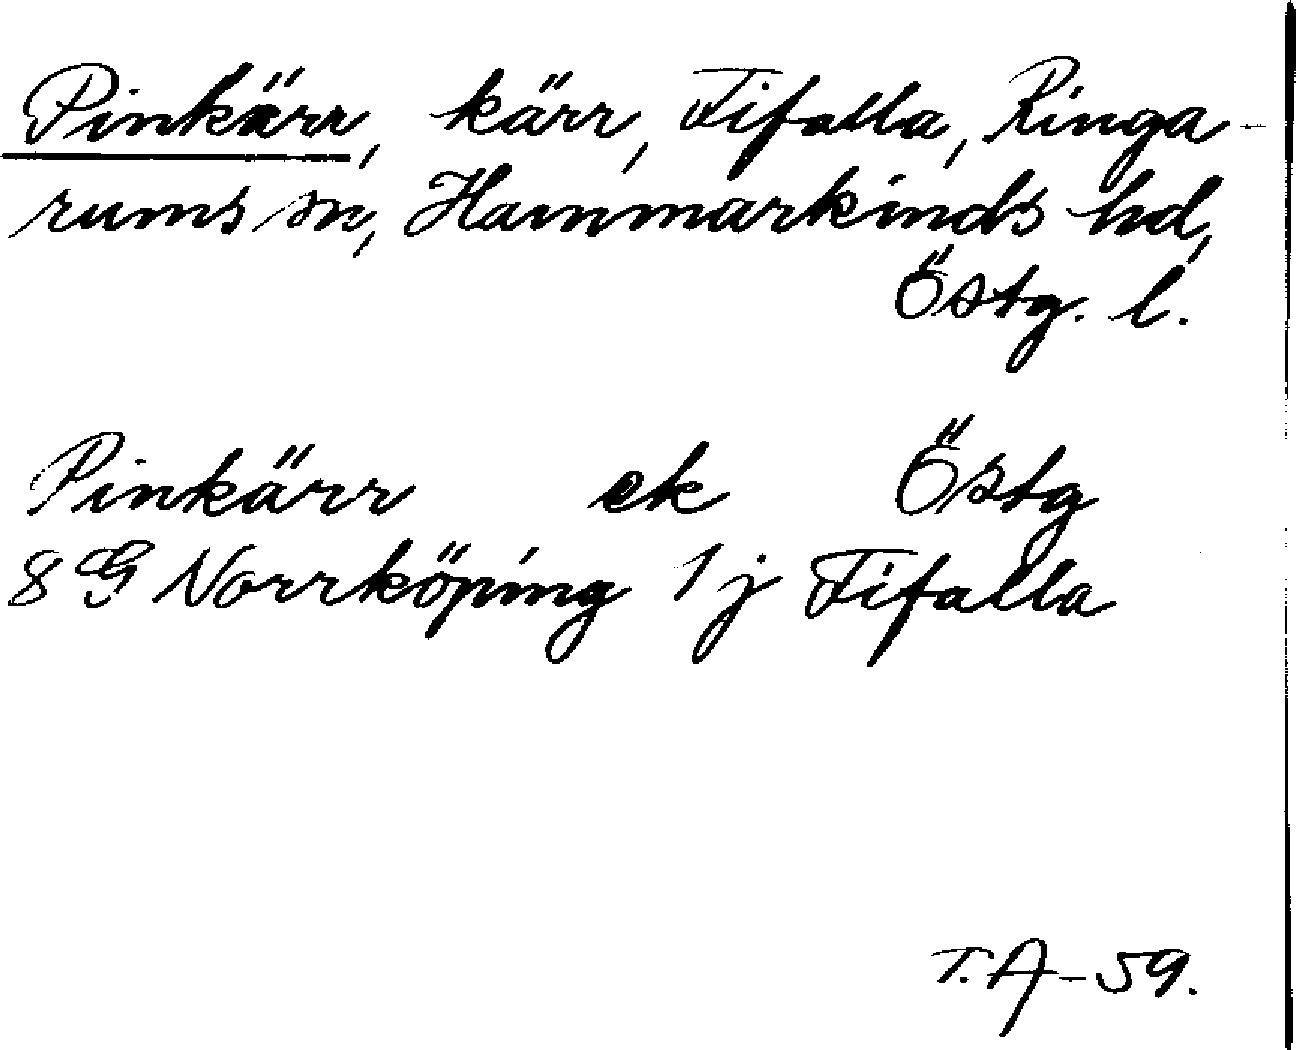 Pinkärr, kärr, Fifalla, Ringa-
rums sn, Hammarkinds hd,
Östg. l.
Pinkärr ek Östg
8 G Norrköping 1 j Fifalla
T.A-59.